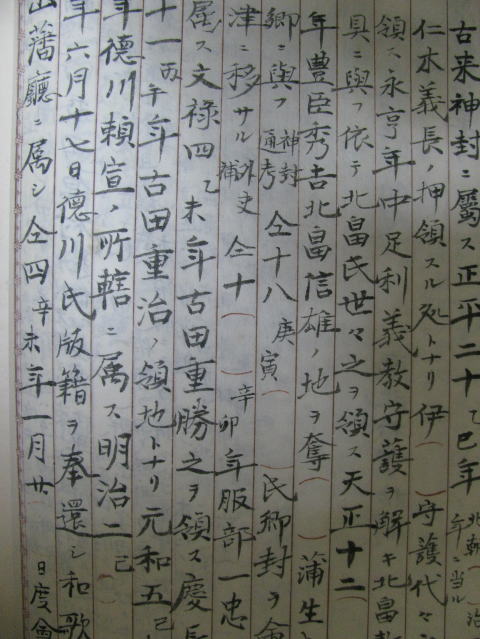 古来神封ニ属ス正平二十乙巳年北朝治年ニ当ル
仁木義長ノ押領スル処トナリ伊 守護代々
領ス永享年中足利義教守護ヲ解キ北畠
具ニ与フ依テ北畠氏世々之ヲ領ス天正十二
年豊臣秀吉北畠信雄ノ地ヲ奪 蒲生
郷ニ與フ神封通考仝十八庚寅 氏郷封ヲ會
津ニ移サル外史補仝十 辛卯年服部一忠
属ス文禄四乙未年古田重勝之ヲ領ス慶長
十一丙午年古田重治ノ領地トナリ元和五己
年徳川頼宣ノ所轄ニ属ス明治二己
年六月十七日徳川氏版籍ヲ奉還シ和歌
山藩廳ニ属シ仝四辛未年一月廿 日度會